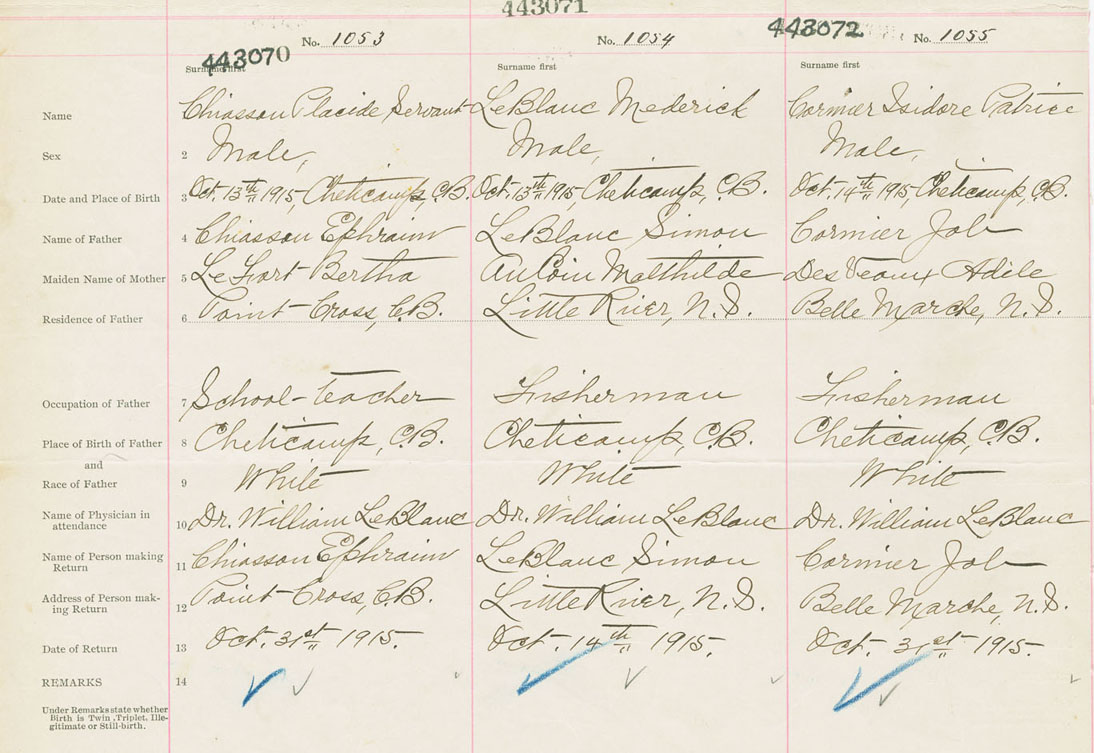 443071
No. 1053 No. 1054 443072 No. 1055
443070
Surname first Surname first Surname first
Name Chiasson Placide Servant LeBlanc Mederick Cormier Isidore Patrice
Sex 2 Male, Male, Male,
Date and Place of Birth 3 Oct. 13th 1915, Cheticamp, C.B. Oct. 13th 1915 Cheticamp, C.B. Oct. 14th 1915, Cheticamp, C.B.
Name of Father 4 Chiasson Ephraim LeBlanc Simon Cormier Job
Maiden Name of Mother 5 LeFort Bertha AuCoin Malthilde DesVeaux Adele
Residence of Father 6 Point-Cross, C.B. Little River, N.S. Belle Marche, N.S.
Occupation of Father 7 School-teacher Fisherman Fisherman
Place of Birth of Father 8 Cheticamp, C.B. Cheticamp, C.B. Cheticamp, C.B.
and
Race of Father 9 White White White
Name of Physician in
attendance 10 Dr. William LeBlanc Dr. William LeBlanc Dr. William LeBlanc
Name of Person making
Return 11 Chiasson Ephraim LeBlanc Simon Cormier Job
Address of Person mak-
ing Return 12 Point-Cross, C.B. Little River, N.S. Belle Marche, N.S.
Date of Return 13 Oct. 31st 1915. Oct. 14th 1915. Oct. 31st 1915.
REMARKS 14
Under Remarks state whether
Birth is Twin, Triplet, Ille-
gitimate or Still-birth.